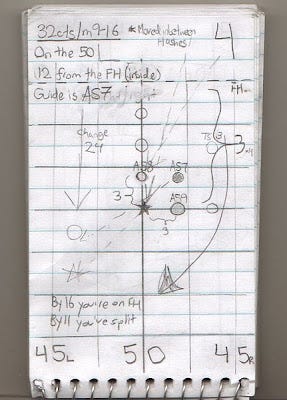 32cts/m9-16 *Moved inbetween Hashes 4
On the 50
12 from the FH (inside)
Guide is AS7
FH
change
24
TS 3
3
AS8 AS7
3
AS9
3
By 16 you're on FH
By 11 you've split
45L 50 45R